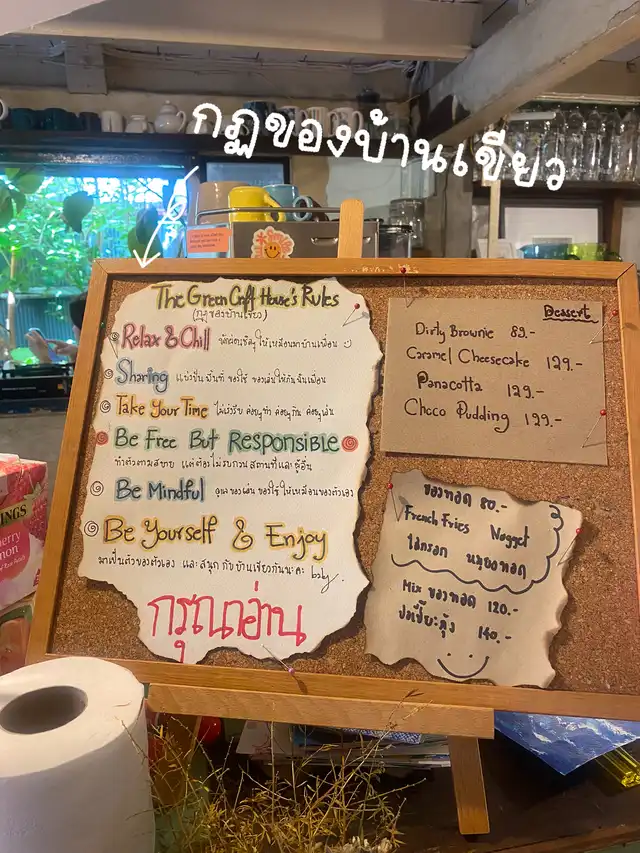 กฎของบ้านเขียว
The Green Craft House's Rules
(กฎของบ้านเขียว)
Relax & Chill พักผ่อนชิลๆ ให้เหมือนมาบ้านเพื่อน :)
Sharing แบ่งปัน พื้นที่ ของใช้ ของเล่นให้กันนะเพื่อน
Take Your Time ไม่เร่งรีบ ค่อยๆทำ ค่อยๆกิน ค่อยๆเล่น
Be Free But Responsible
ทำตัวตามสบาย แต่ต้องไม่รบกวน สถานที่และผู้อื่น
Be Mindful ดูแลของเล่น ของใช้ ให้เหมือนของตัวเอง
Be Yourself & Enjoy
มาเป็นตัวของตัวเอง และสนุก กับบ้านเขียวกันนะคะ baby.
กรุณาอ่าน
Dessert
Dirty Brownie 89.-
Caramel Cheesecake 129.-
Panacotta 129.-
Choco Pudding 199.-
ของทอด 80.-
French Fries Nugget
ไส้กรอก หมูยอทอด
Mix ของทอด 120.-
ปอเปี๊ยะกุ้ง 140.-